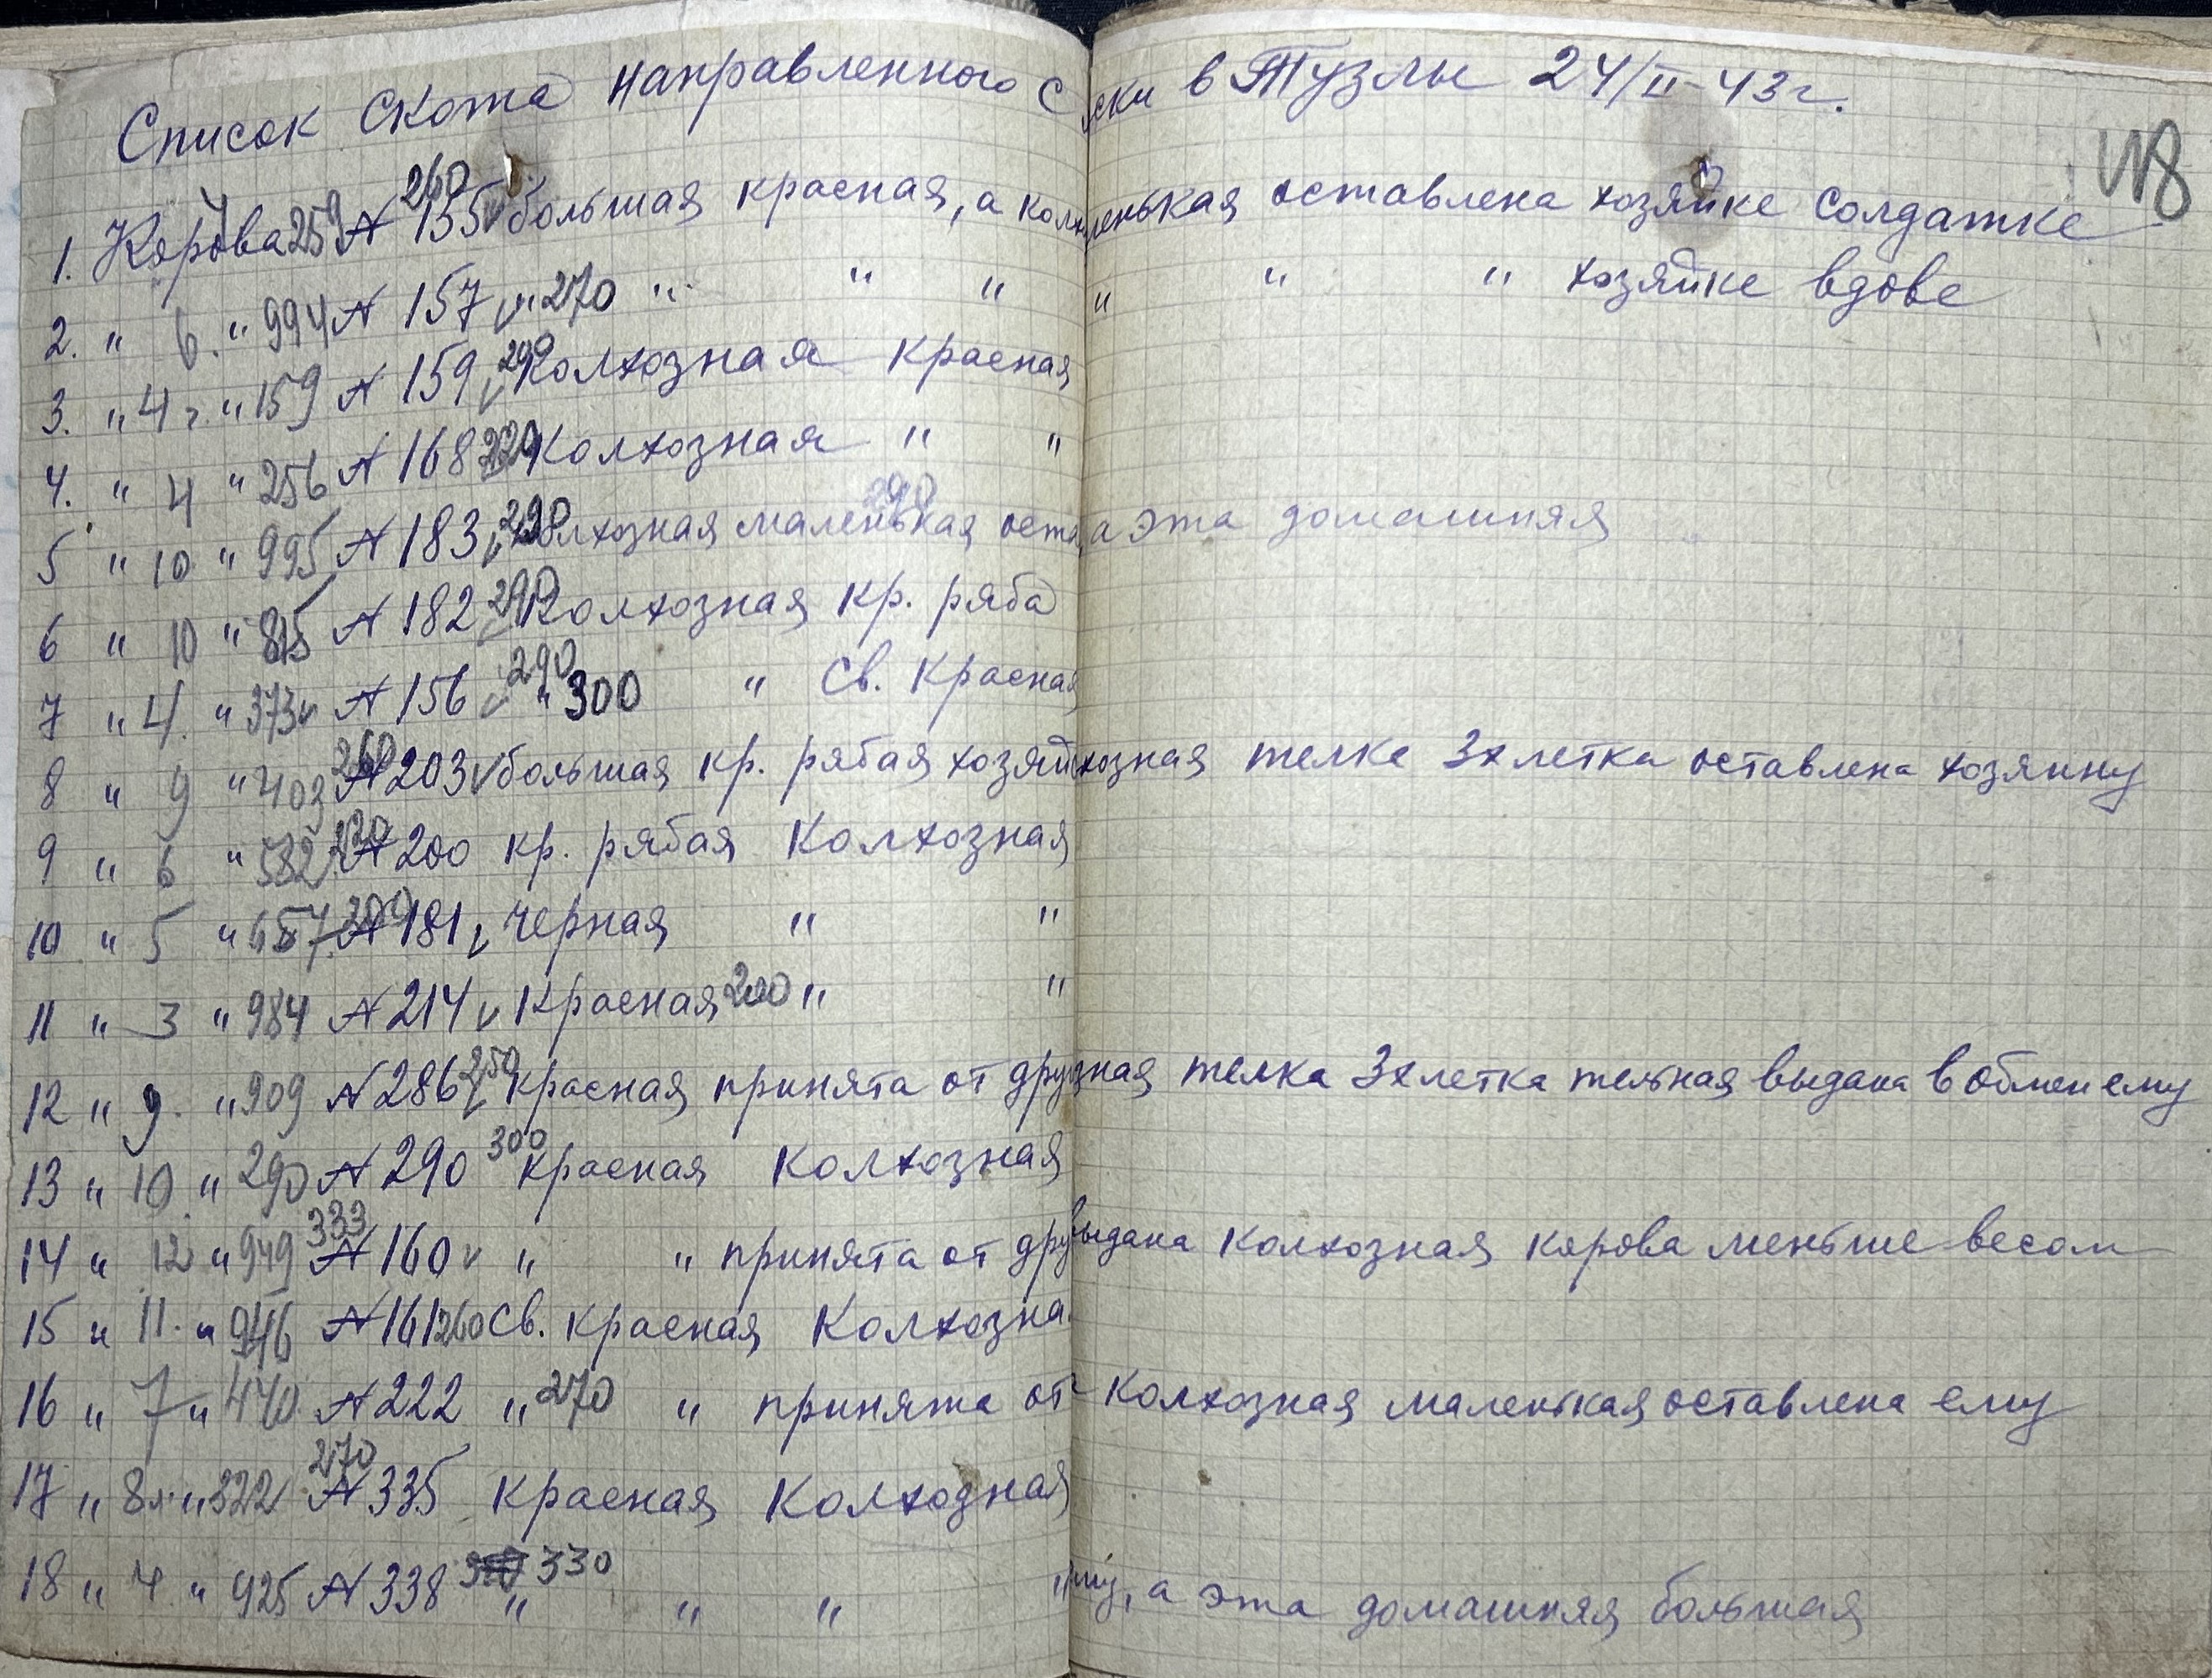 Список скота направленного с ски в Тузлы 24/II-43 г.
118
1. Корова 7 259 N 155 260 большая красная, а колх ленькая оставлена хозяйке солдатке
2. " 6. " 994 N 157 " 270 " " " " " " хозяйке вдове
3. " 4 г. " 159 N 159 290 Колхозная красная
4. " 4 " 256 N 168 220 Колхозная " "
5 " 10 " 995 N 183 290 Колхозная маленькая оста а эта домашняя
6 " 10 " 815 N 182 290 Колхозная кр. ряба
7 " 4. " 373 N 156 290 " 300 " св. красная
8 " 9 " 403 260 N 203 большая кр. рябая хозяй хозная телке 3х летка оставлена хозяину
9 " 6 " 582 N 200 кр. рябая Колхозная
10 " 5 " 657 200 N 181 черная " "
11 " 3 " 984 N 214 красная 200 " "
12 " 9. " 909 N 286 250 красная принята от друг зная телка 3х летка тельная выдана в обмен ему
13 " 10. " 290 N 290 300 красная Колхозная
14 " 12 " 949 333 N 160 " " принята от дру выдана колхозная корова меньше весом
15 " 11. " 946 N 161 260 св. красная Колхозна
16 " 7 " 470 N 222 " 270 " принята от колхозная маленькая оставлена ему
17 " 8 " 322 270 N 335 красная Колхозная
18 " 4. " 925 N 338 330 " " " " му, а эта домашняя большая